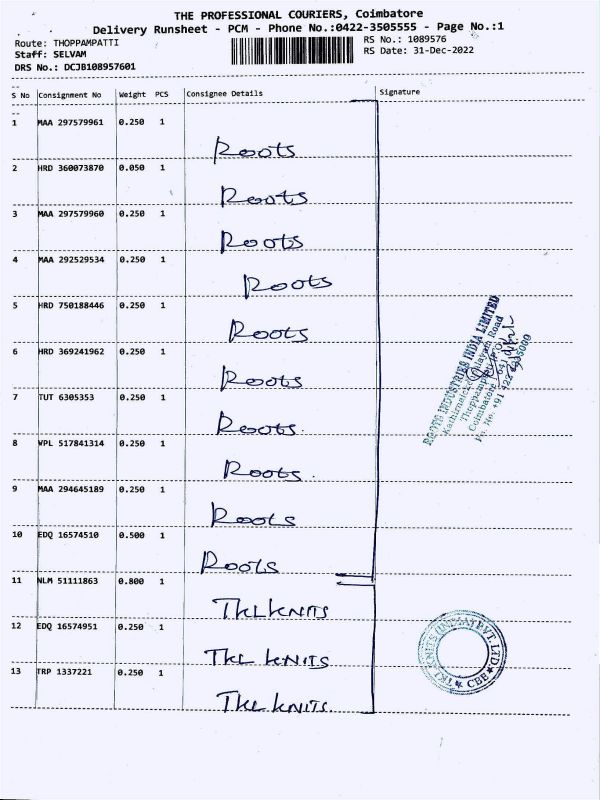 THE PROFESSIONAL COURIERS, Coimbatore
Delivery Runsheet - PCM - Phone No.:0422-3505555 - Page No.:1
Route: THOPPAMPATTI
RS No.: 1089576
Staff: SELVAM
RS Date: 31-Dec-2022
DRS No.: DCJB108957601
S No Consignment No Weight PCS Consignee Details Signature
1 MAA 297579961 0.250 1
Roots
2 HRD 360073870 0.050 1
Roots
3 MAA 297579960 0.250 1
Roots
4 MAA 292529534 0.250 1
Roots
5 HRD 750188446 0.250 1
Roots
6 HRD 369241962 0.250 1
Roots
7 TUT 6305353 0.250 1
Roots.
8 VPL 517841314 0.250 1
Roots.
9 MAA 294645189 0.250 1
Roots
10 EDQ 16574510 0.500 1
Roots
11 NLM 51111863 0.800 1
TKL KNITS
12 EDQ 16574951 0.250 1
TKL KNITS
13 TRP 1337221 0.250 1
TKL KNITS.
ROOTS INDUSTRIES INDIA LIMITED
Kathirnaickenpalayam Road
Coimbatore
Ph. No. +91 422
TKL KNITS PVT. LTD.
CBE